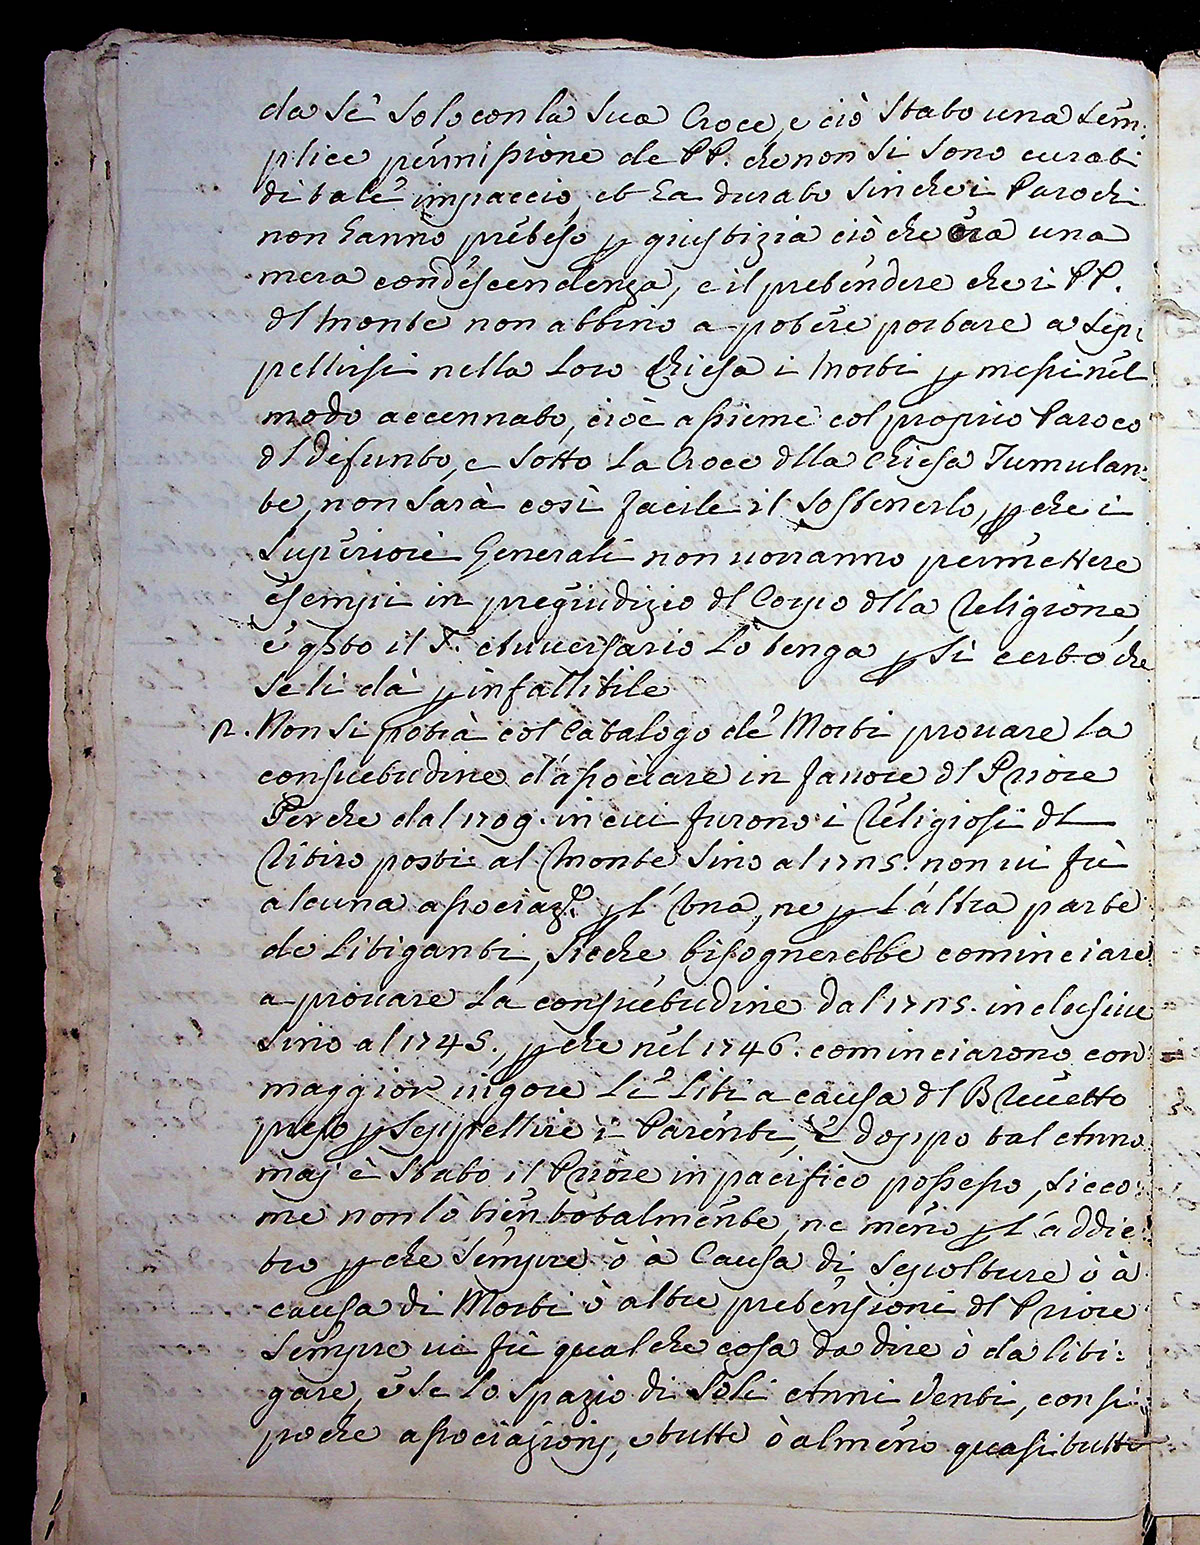 da sè solo con la sua Croce, e ciò è stato una sem:
plice permissione de PP. che non si sono curati
di tale impaccio, et ha durato sin che i Parochi
non hanno preteso p giustizia ciò che era una
mera condescendenza, e il pretendere che i PP.
dl Monte non abbino a potere portare a sep:
pellirsi nella loro Chiesa i Morti p messi nel
modo accennato, cioè assieme col proprio Paroco
dl Defunto, e sotto la Croce dlla Chiesa Tumulan:
te, non sarà così facile il sostenerlo, pche i
Superiori Generali non vorranno permettere
esempi in pregiudizio dl Corpo dlla Religione,
e qsto il S. Avversario lo tenga p sì certo che
se li dà p infallibile
2. Non si potrà col Catalogo de Morti provare la
consuetudine d'associare in favore dl Priore
Perche dal 1709. in cui furono i Religiosi dl
Ritiro posti al Monte sino al 1725. non vi fù
alcuna associaz.e p l'una, ne p l'altra parte
de litiganti, sicche bisognerebbe cominciare
a provare la consuetudine dal 1725. inclusive
sino al 1745. pche nel 1746. cominciarono con
maggior vigore le liti a causa dl Brevetto
preso p seppellire i Parenti, e doppo tal Anno
maj è stato il Priore in pacifico possesso, sicco:
me non lo tien totalmente, ne meno p l'addie:
tro pche sempre ò à causa di sepolture ò à
causa di Morti ò altre pretensioni dl Priore
sempre vi fù qualche cosa da dire ò da liti:
gare, e se lo spazio di soli Anni venti, con sì
poche associazionj, e tutte ò almeno quasi tutte